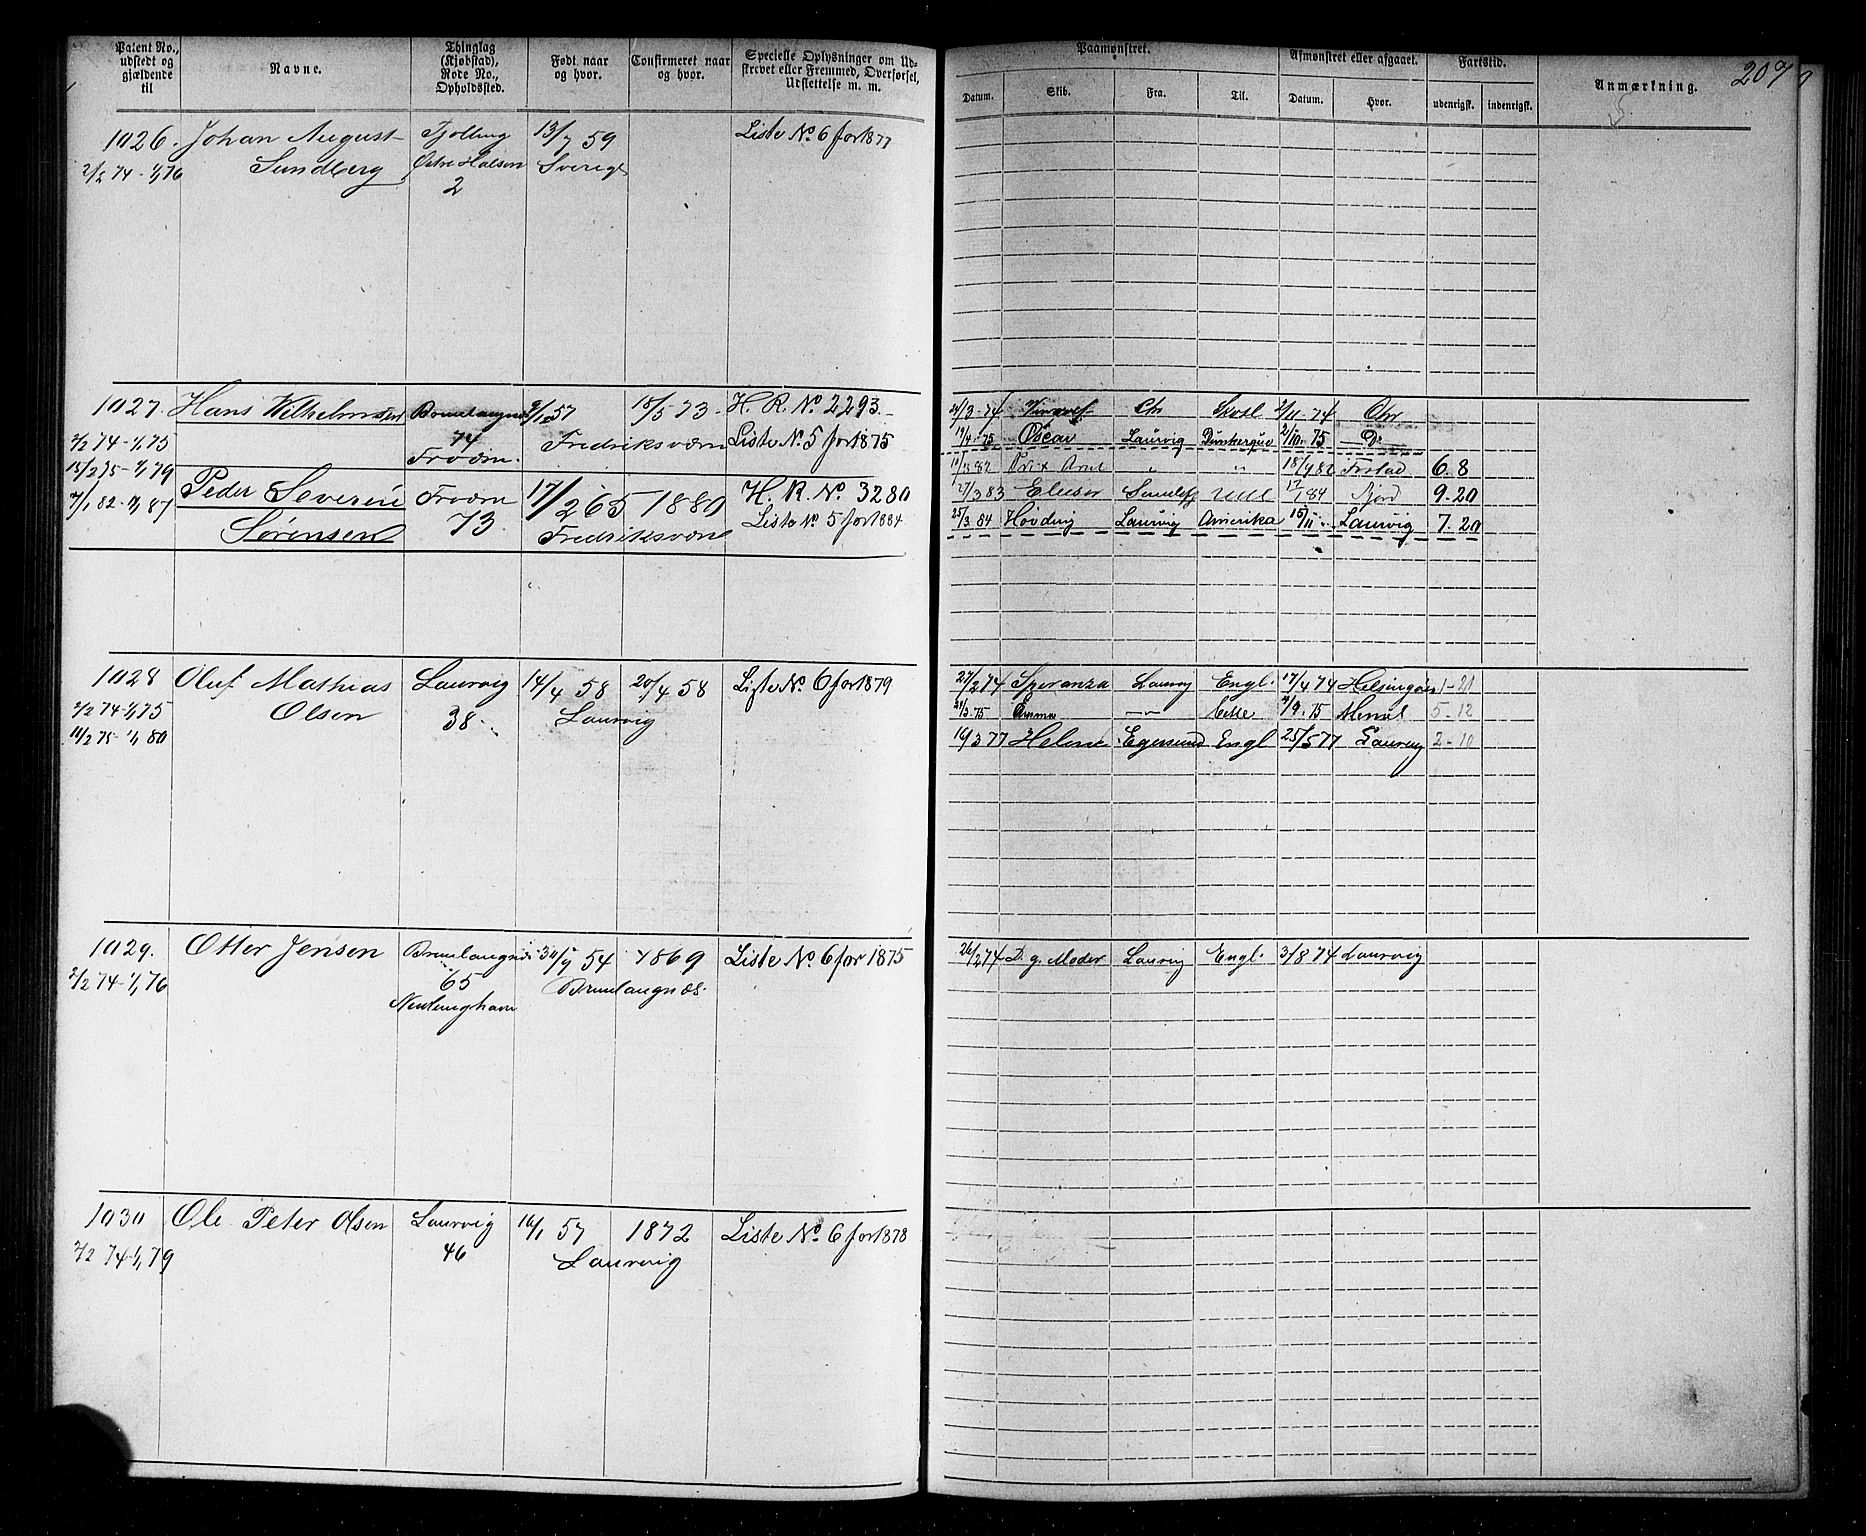 207
Patent No., udstedt og gjældende til
Navne.
Thinglag (Kjøbstad), Rode No., Opholdssted.
Født naar og hvor.
Confirmeret naar og hvor.
Specielle Oplysninger om Udskrevet eller Fremmed, Overførsel, Udslettelse m. m.
Paamønstret.
Datum. Skib. Fra. Til.
Afmønstret eller afgaaet.
Datum. Hvor.
Fartstid.
udenrigsk. indenrigsk.
Anmærkning.
1026. Johan August Tjølling 13/7 59 Liste No 6 for 1877
2/2 74 - 1/1 76 Sundberg Østre Halsen Sverige
2
1027. Hans Wilhelmsen Brunlangnæs 9/12 57 15/5 73 - H. R. No 2293.
2/2 74 - 1/1 75 74 Fredriksværn Liste No. 5 for 1875
15/2 75 - 1/1 79 Frværn.
Peder Severin Frværn 17/2 65 1880 H. R. No. 3280
1/1 87 Sørensen 73. Fredriksværn Liste No 5 for 1884
74 Chr 2/11 - 74 Chr
19/4 - 75 Oscar Laurvig Dünkerque 2/10. 75 - Do
82 " " 18/9 82 6. 8
27/3 83 84 9 - 20
25/3 84 Høvding Laurvig Amerika 15/11 " Laurvig 7. 20
1028 Oluf Mathias Laurvig 14/4 58 20/4 58 Liste No. 6 for 1879
2/2 74 - 1/1 75 Olsen 38 Laurvig
75 - 1/1 80
27/2 74 Speranza Laurvig Engl. 17/4 74 Helsingør 1 - 21
75 Emma - " - 75 Memel 5 - 12
16/3 77 Helene Egersund Engl 25/5 77 Laurvig 2 - 10
1029. Otter Jensen Brunlangnæs 54 1869 Liste No. 6 for 1875
2/2 74 - 1/1 76 65 Brunlangnæs.
Nevlunghavn
26/2 74 D. g. Moder Laurvig Engl. 3/8 74 Laurvig
1030 Ole Peter Olsen Laurvig 16/1 57 1872 Liste No. 6 for 1878
2/2 74 - 1/1 79 46 Laurvig